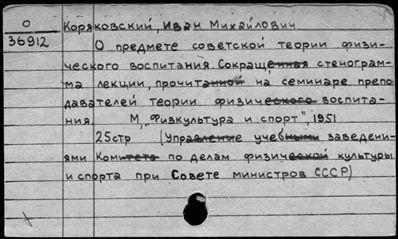 О
36912
Коряковский, Иван Михайлович
О предмете советской теории физи-
ческого воспитания. Сокращенная стенограм-
ма лекции, прочитанной на семинаре препо-
давателей теории физического воспита-
ния. М, "Физкультура и спорт", 1951
25стр (Управление учебными заведени-
ями Комитета по делам физической культуры
и спорта при Совете министров СССР)